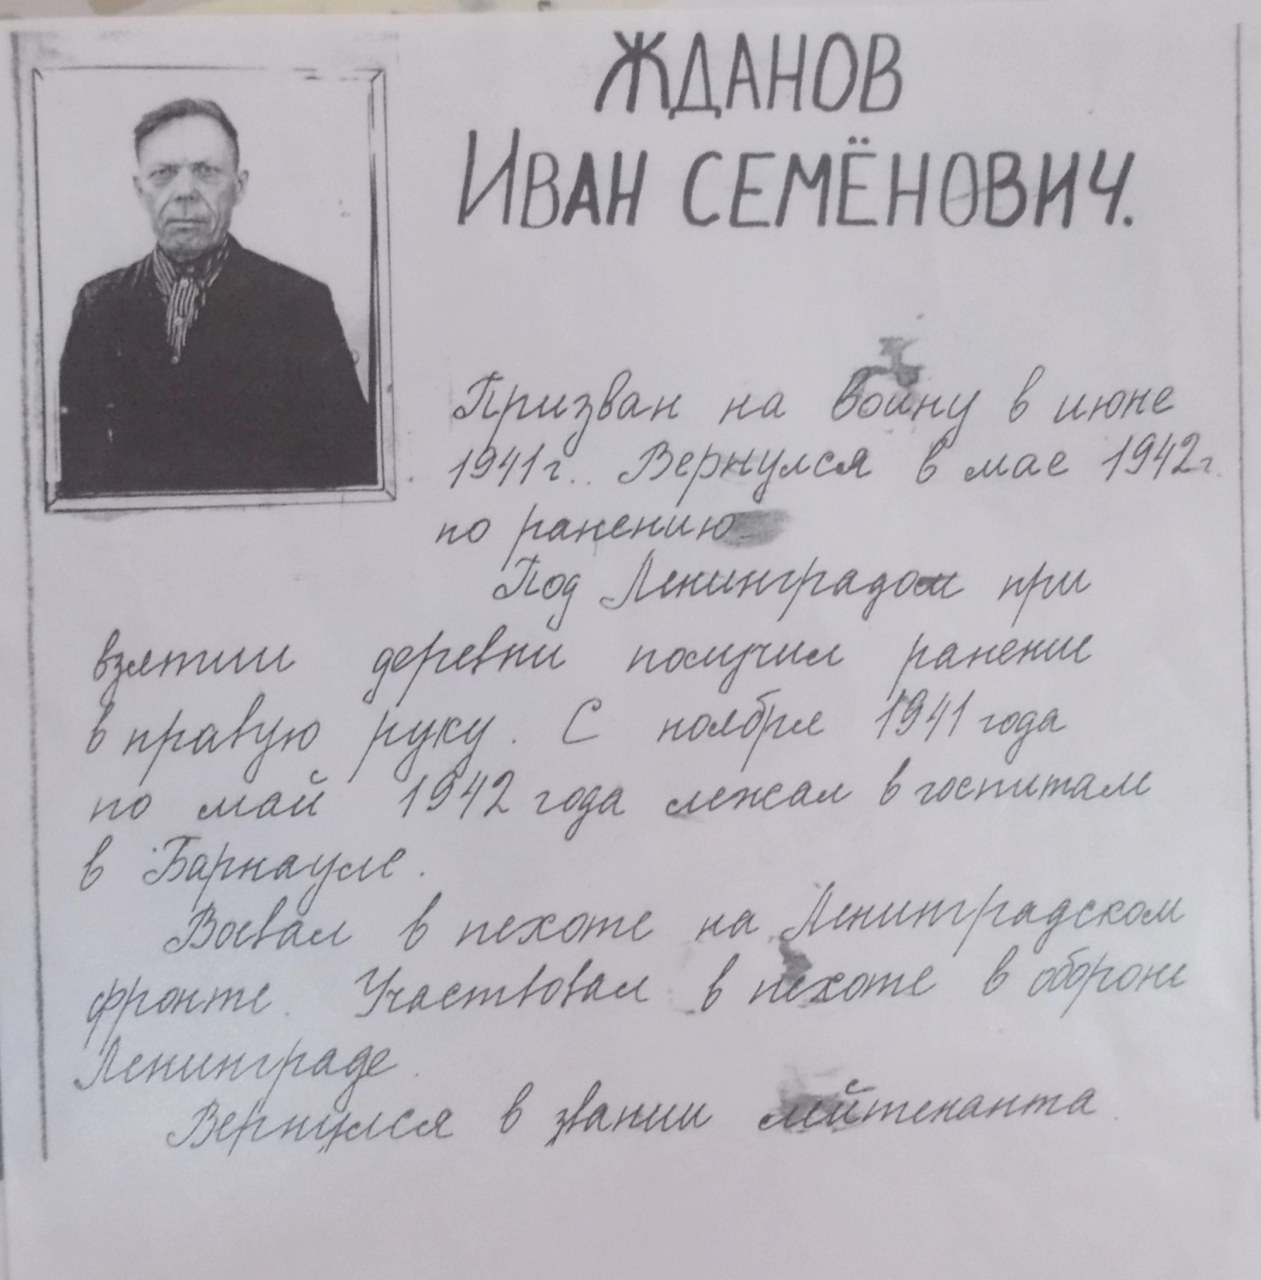 ЖДАНОВ
ИВАН СЕМЁНОВИЧ.
Призван на войну в июне
1941г.. Вернулся в мае 1942г.
по ранению
Под Ленинградом при
взятии деревни получил ранение
в правую руку. С ноября 1941 года
по май 1942 года лежал в госпитале
в Барнауле.
Воевал в пехоте на Ленинградском
фронте. Участвовал в пехоте в обороне
Ленинграде.
Вернулся в звании лейтенанта.